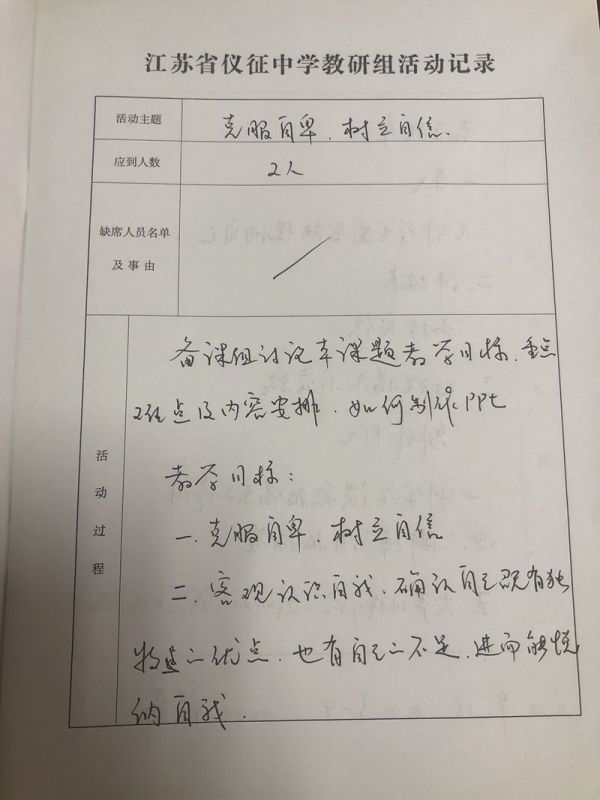 江苏省仪征中学教研组活动记录
活动主题
克服自卑、树立自信.
应到人数
2人
缺席人员名单
及事由
活动过程
备课组讨论本课题教学目标、重点
难点及内容安排、如何制作PPt
教学目标：
一、克服自卑、树立自信
二、客观认识自我、确认自己既有独
特之优点、也有自己之不足、进而能悦
纳自我.